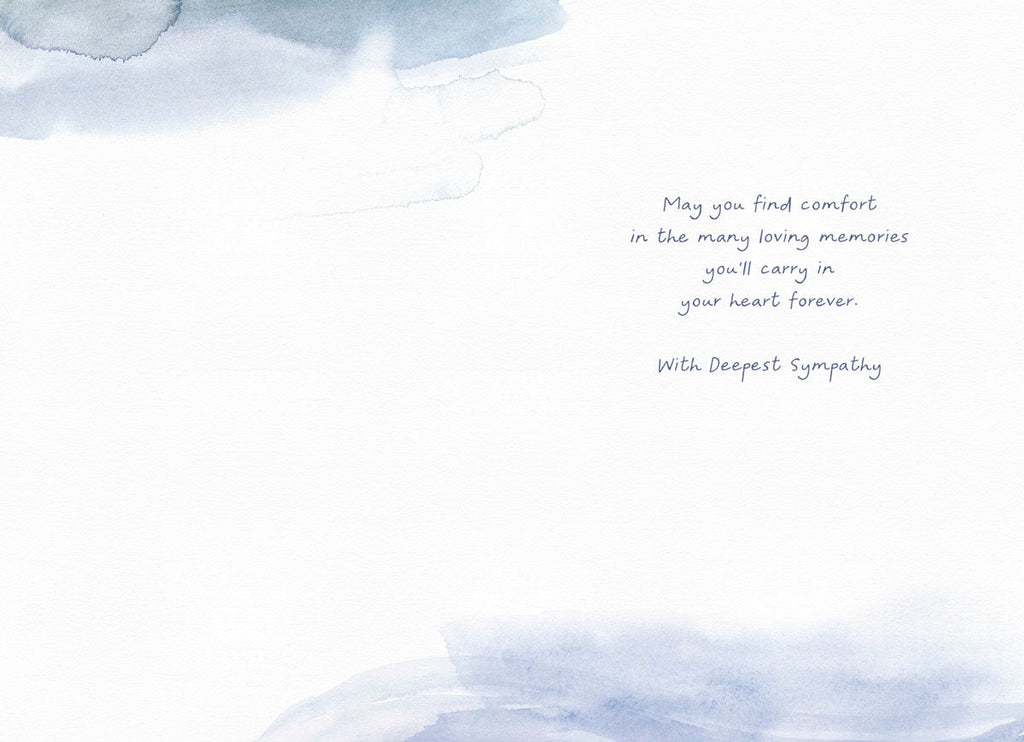 May you find comfort
in the many loving memories
you'll carry in
your heart forever.
With Deepest Sympathy